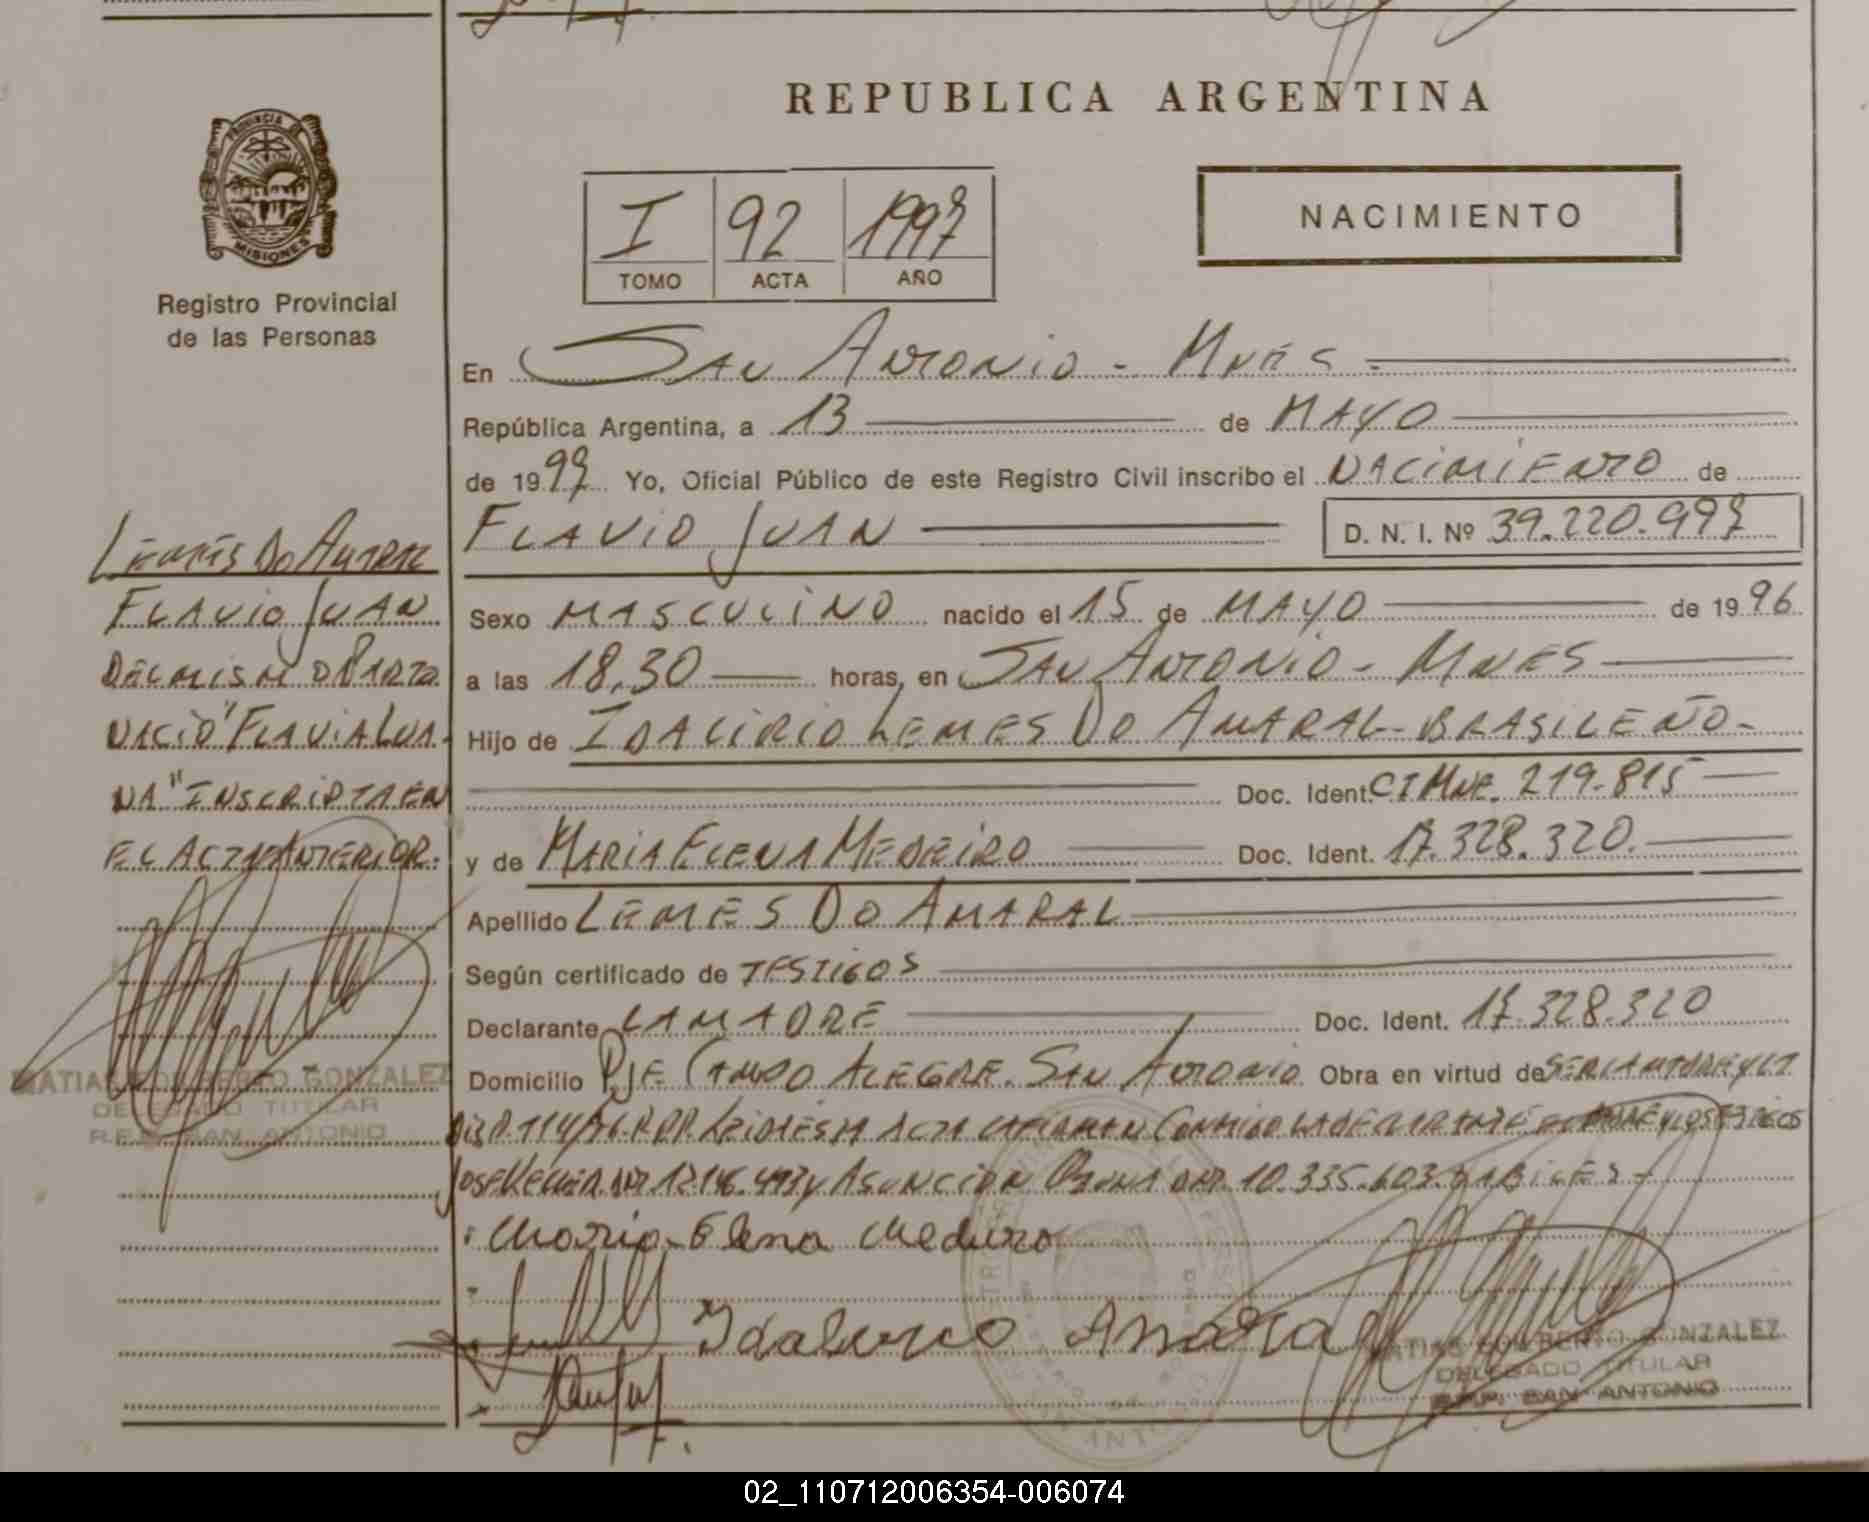 REPUBLICA ARGENTINA
PROVINCIA DE
MISIONES
Registro Provincial
de las Personas
I 92 1997
TOMO ACTA AÑO
NACIMIENTO
En San Antonio - Mnes -
República Argentina, a 13 de MAYO
de 1997 Yo, Oficial Público de este Registro Civil inscribo el NACIMIENTO de
FLAVIO JUAN D. N. I. Nº 39.220.997
Sexo MASCULINO nacido el 15 de MAYO de 1996
a las 18,30 horas, en SAN ANTONIO - MNES
Hijo de IDALIRIO LEMES DO AMARAL - BRASILEÑO -
Doc. Ident. CI Mne. 219.815
y de MARIA ELENA MEDEIRO Doc. Ident. 17.328.320.
Apellido LEMES DO AMARAL
Según certificado de TESTIGOS
Declarante LA MADRE Doc. Ident. 17.328.320
Domicilio PJE CAMPO ALEGRE. SAN ANTONIO Obra en virtud de SER LA MADRE Y LA
DISP. 114/96. R.P.P. LEIDA ESTA ACTA LA FIRMAN CONMIGO LA DECLARANTE EL PADRE Y LOS TESTIGOS
JOSE 12.146. Y ASUNCION DNI. 10.335.603. HABILES -
Maria Elena Medeiro
Idalirio Amaral
MATIAS GONZALEZ
DELEGADO TITULAR
R.P.P. SAN ANTONIO
LEMES DO AMARAL
FLAVIO JUAN
DEL MISMO PARTO
NACIO "FLAVIA LUA-
NA" INSCRIPTA EN
EL ACTA ANTERIOR.
MATIAS GONZALEZ
DELEGADO TITULAR
R.P.P. SAN ANTONIO
02_110712006354-006074